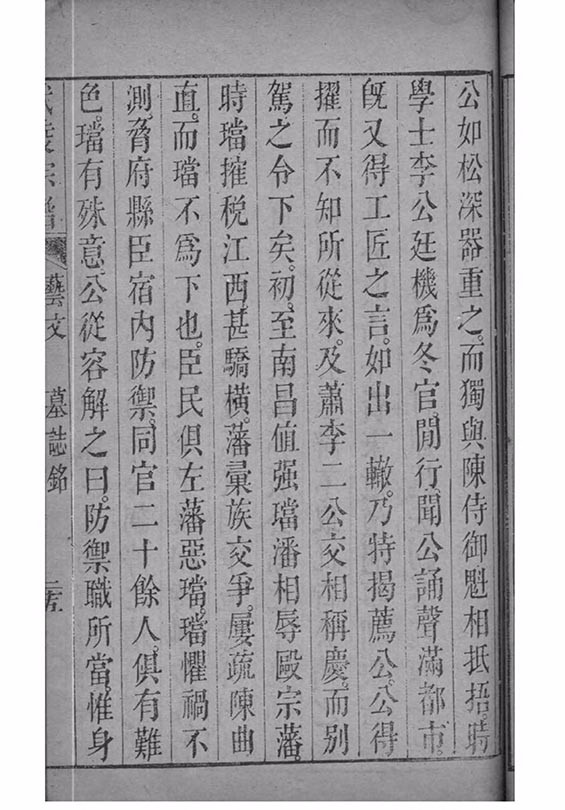 公如松深器重之。而獨與陳侍御魁相抵捂。時
學士李公廷機爲冬官。閒行。聞公誦聲滿都市。
旣又得工匠之言。如出一轍。乃特揭薦公。公得
擢而不知所從來。及蕭李二公交相稱慶。而别
駕之令下矣。初。至南昌值强璫潘相辱毆宗藩。
時璫擁税江西。甚驕橫。藩彙族交爭。屢疏陳曲
直。而璫不爲下也。臣民俱左藩惡璫。璫懼禍不
測。脅府縣臣宿內防禦。同官二十餘人。俱有難
色。璫有殊意。公從容解之曰。防禦職所當。惟身
藝文 墓誌銘